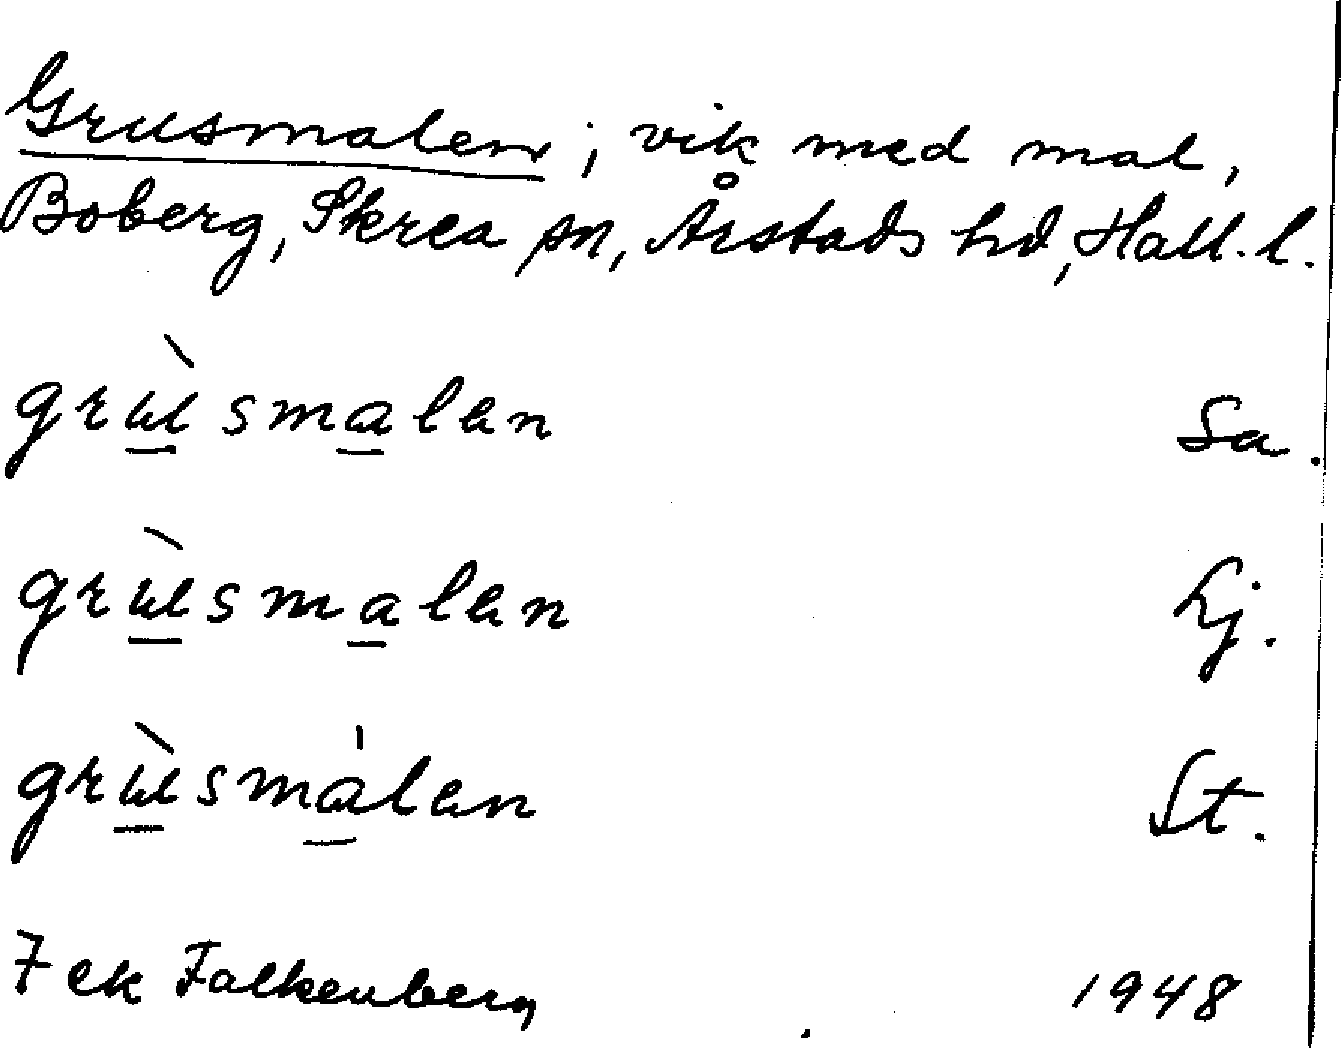 Grusmalen; vik med mal,
Boberg, Skrea sn, Årstads hd, Hall. l.
grùsmalen Sa.
grùsmalen Hj.
grùsmálen St.
7 ek Falkenberg 1948